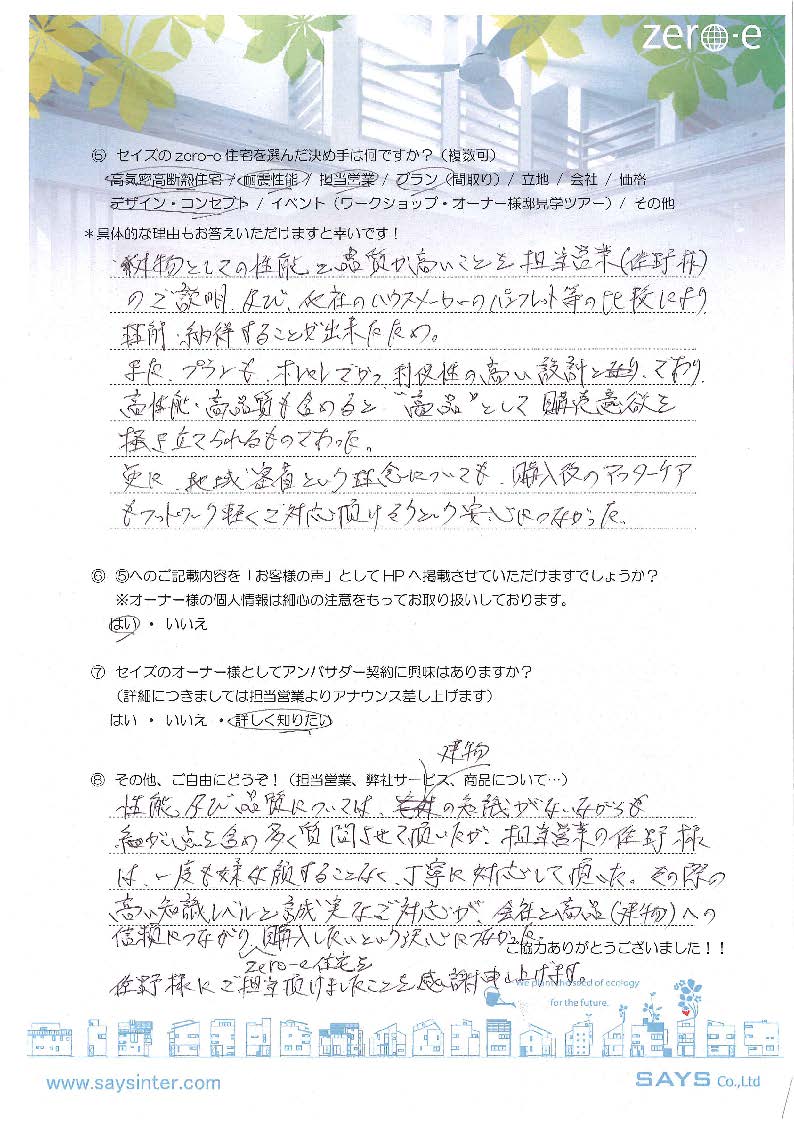 zero-e
⑤ セイズのzero-e住宅を選んだ決め手は何ですか？（複数可）
高気密高断熱住宅 / 耐震性能 / 担当営業 / プラン（間取り）/ 立地 / 会社 / 価格
デザイン・コンセプト / イベント（ワークショップ・オーナー様邸見学ツアー）/ その他
＊具体的な理由もお答えいただけますと幸いです！
・建物としての性能と品質が高いことを担当営業(佐野様)
のご説明、及び、他社のハウスメーカーのパンフレット等の比較により
理解・納得することが出来たため。
また、プランも、オシャレでかつ利便性の高い設計であり、
高性能・高品質も含めると"商品"として購売意欲を
掻き立てられるものであった。
更に、地域密着という理念についても、購入後のアフターケア
もフットワーク軽くご対応頂けそうという安心につながった。
⑥ ⑤へのご記載内容を「お客様の声」としてHPへ掲載させていただけますでしょうか？
※オーナー様の個人情報は細心の注意をもってお取り扱いしております。
はい ・ いいえ
⑦ セイズのオーナー様としてアンバサダー契約に興味はありますか？
（詳細につきましては担当営業よりアナウンス差し上げます）
はい ・ いいえ ・ 詳しく知りたい
⑧ その他、ご自由にどうぞ！（担当営業、弊社サービス、商品について…）
建物
性能及び品質については、の知識がないながらも
細かい点を含め多く質問させて頂いたが、担当営業の佐野様
は、一度も嫌な顔することなく、丁寧に対応して頂いた。その際の
高い知識レベルと誠実なご対応が、会社と商品(建物)への
信頼につながり、購入したいという決心につながった。
ご協力ありがとうございました！！
zero-e住宅を
佐野様にご担当頂けましたことを感謝申し上げます。
We plant the seed of ecology
for the future.
www.saysinter.com
SAYS Co.,Ltd